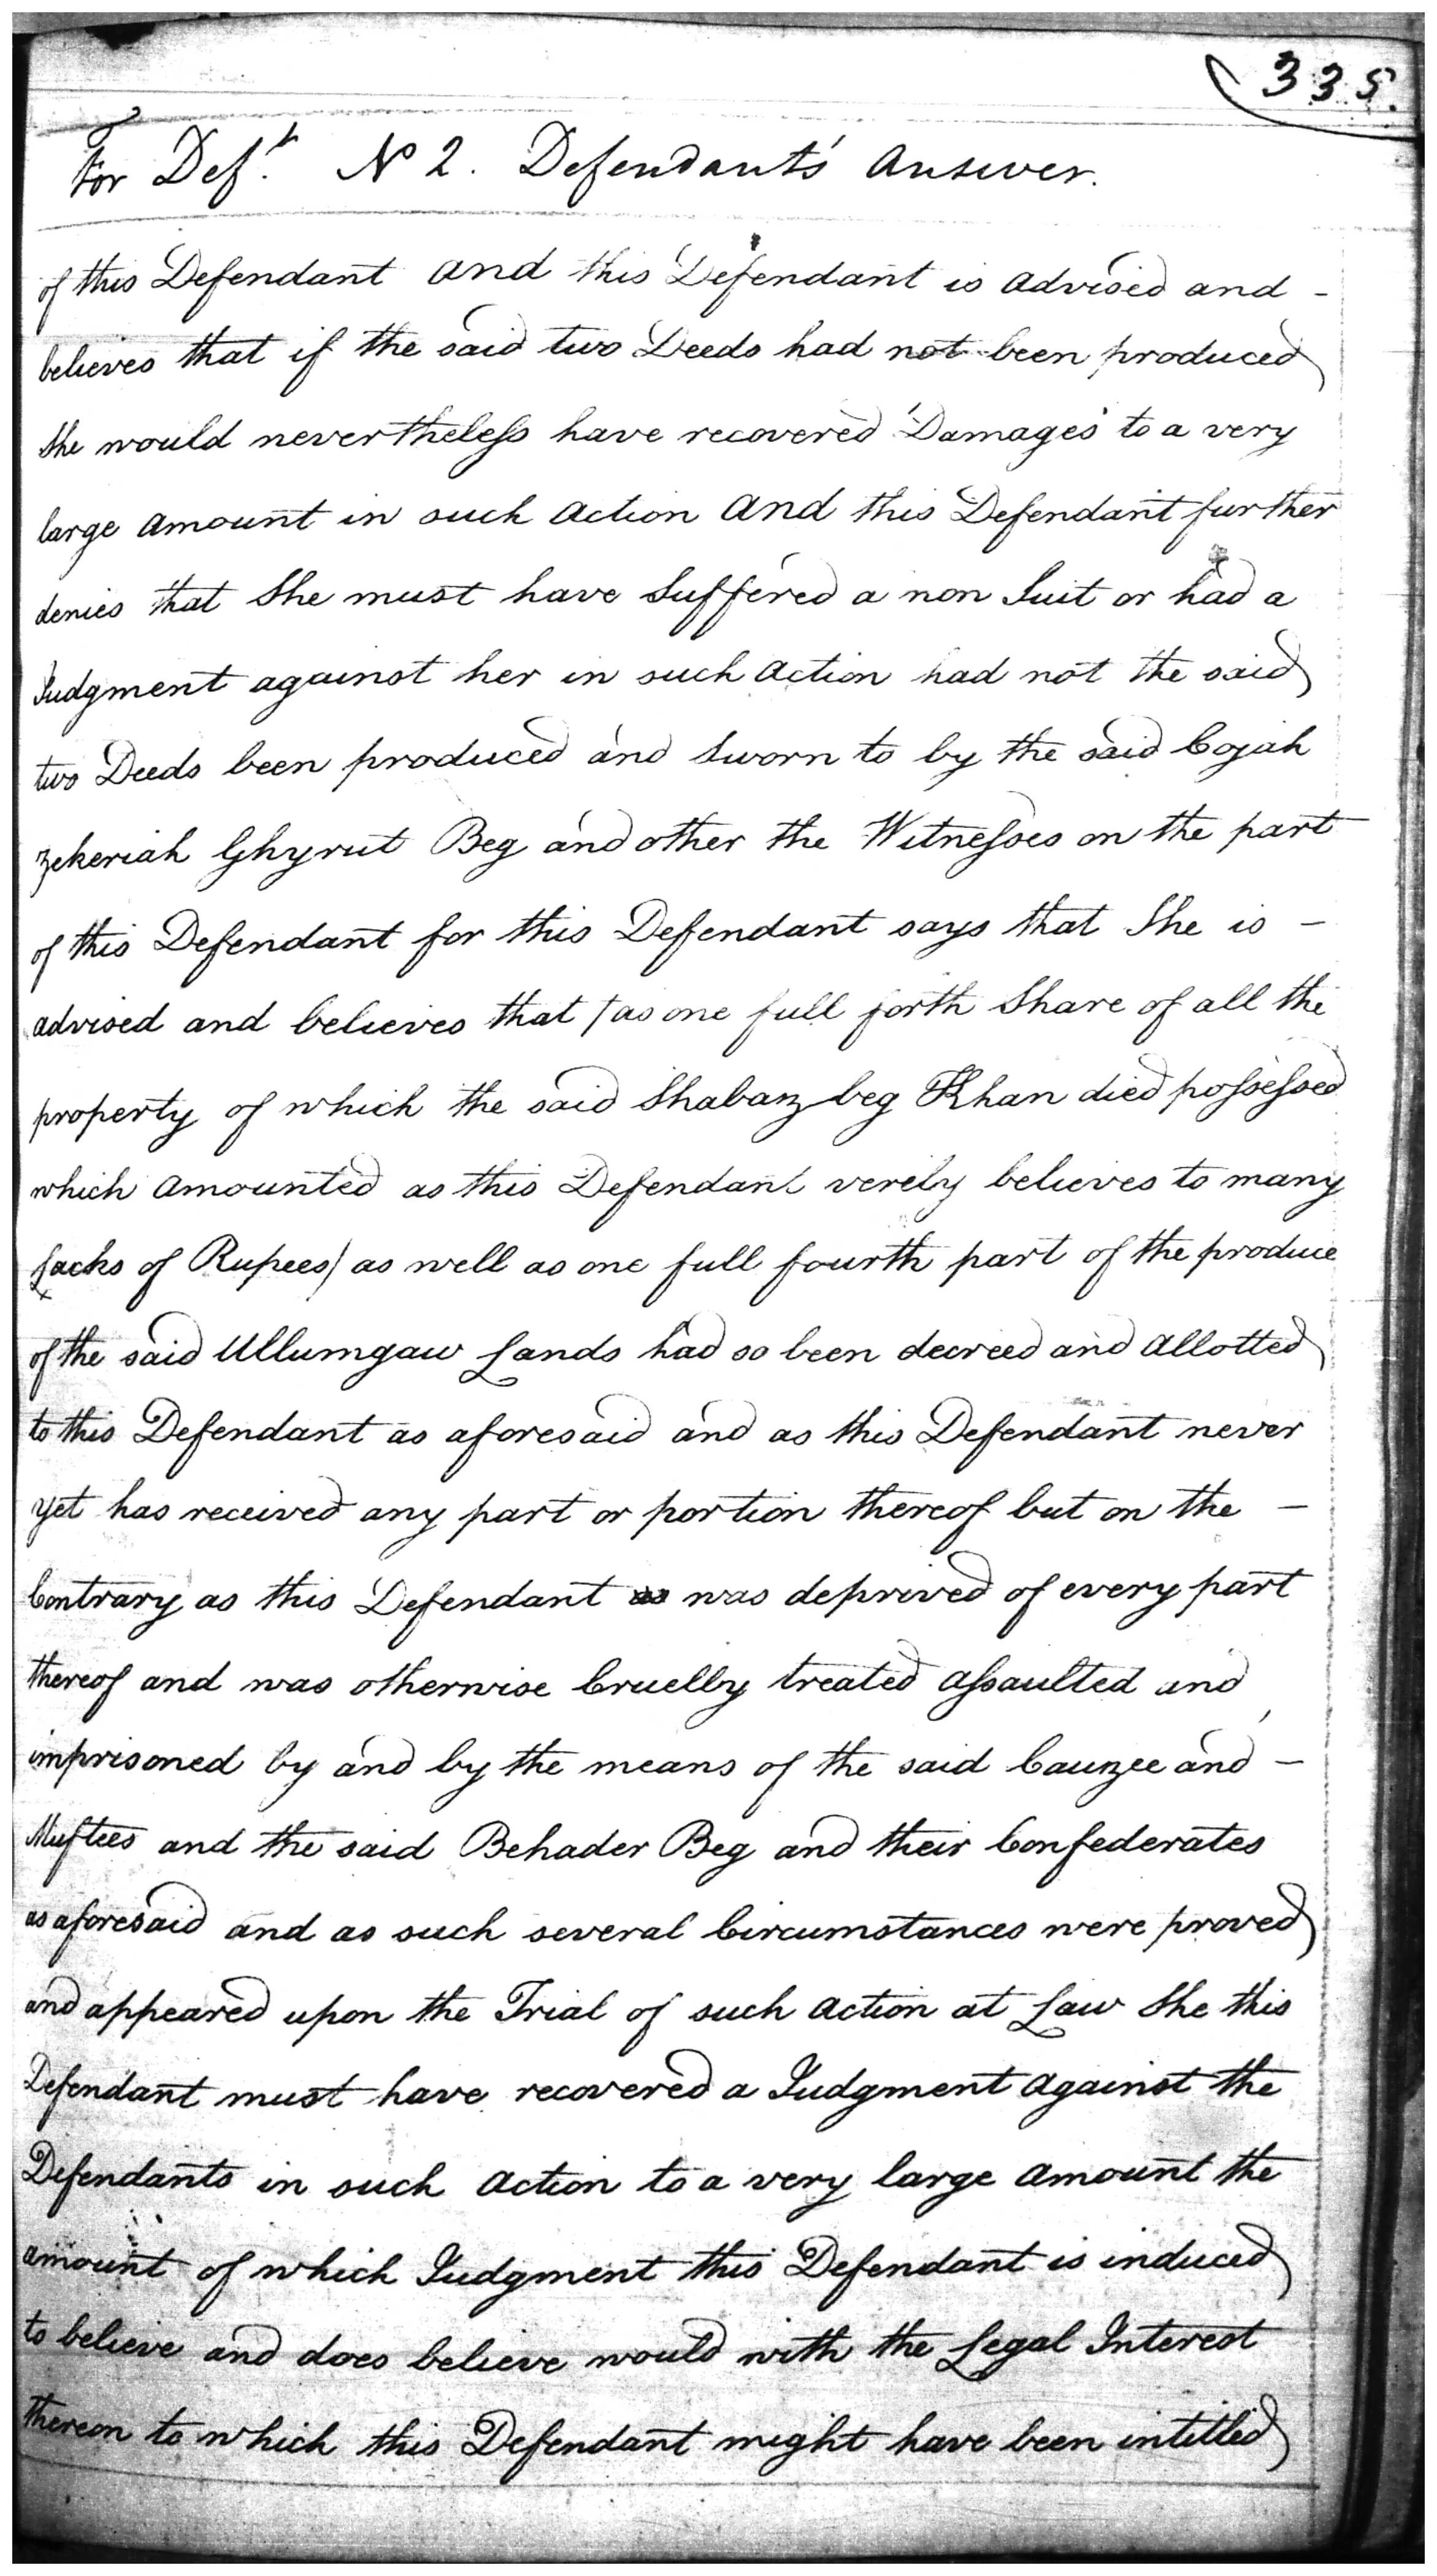 335.
For Def.t No 2. Defendants' Answer.
of this Defendant and this Defendant is advised and -
believes that if the said two Deeds had not been produced
she would nevertheless have recovered Damages to a very
large amount in such action and this Defendant further
denies that She must have Suffered a non Suit or had a
Judgment against her in such action had not the said
two Deeds been produced and Sworn to by the said Cojah
Zekeriah Ghyrut Beg and other the Witnesses on the part
of this Defendant for this Defendant says that She is -
advised and believes that / as one full forth Share of all the
property of which the said Shabaz beg Khan died possessed
which amounted as this Defendant verely believes to many
Lacks of Rupees / as well as one full fourth part of the produce
of the said Ullumgaw Lands had so been decreed and allotted
to this Defendant as aforesaid and as this Defendant never
yet has received any part or portion thereof but on the -
Contrary as this Defendant was deprived of every part
thereof and was otherwise Cruelly treated assaulted and
imprisoned by and by the means of the said Cauzee and -
Muftees and the said Behader Beg and their Confederates
as aforesaid and as such several Circumstances were proved
and appeared upon the Trial of such action at Law She this
Defendant must have recovered a Judgment against the
Defendants in such action to a very large amount the
amount of which Judgment this Defendant is induced
to believe and does believe would with the Legal Interest
thereon to which this Defendant might have been intitled